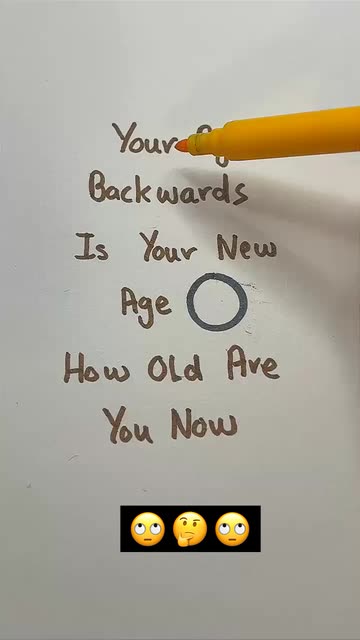 Your
Backwards
Is Your New
Age
How Old Are
You Now